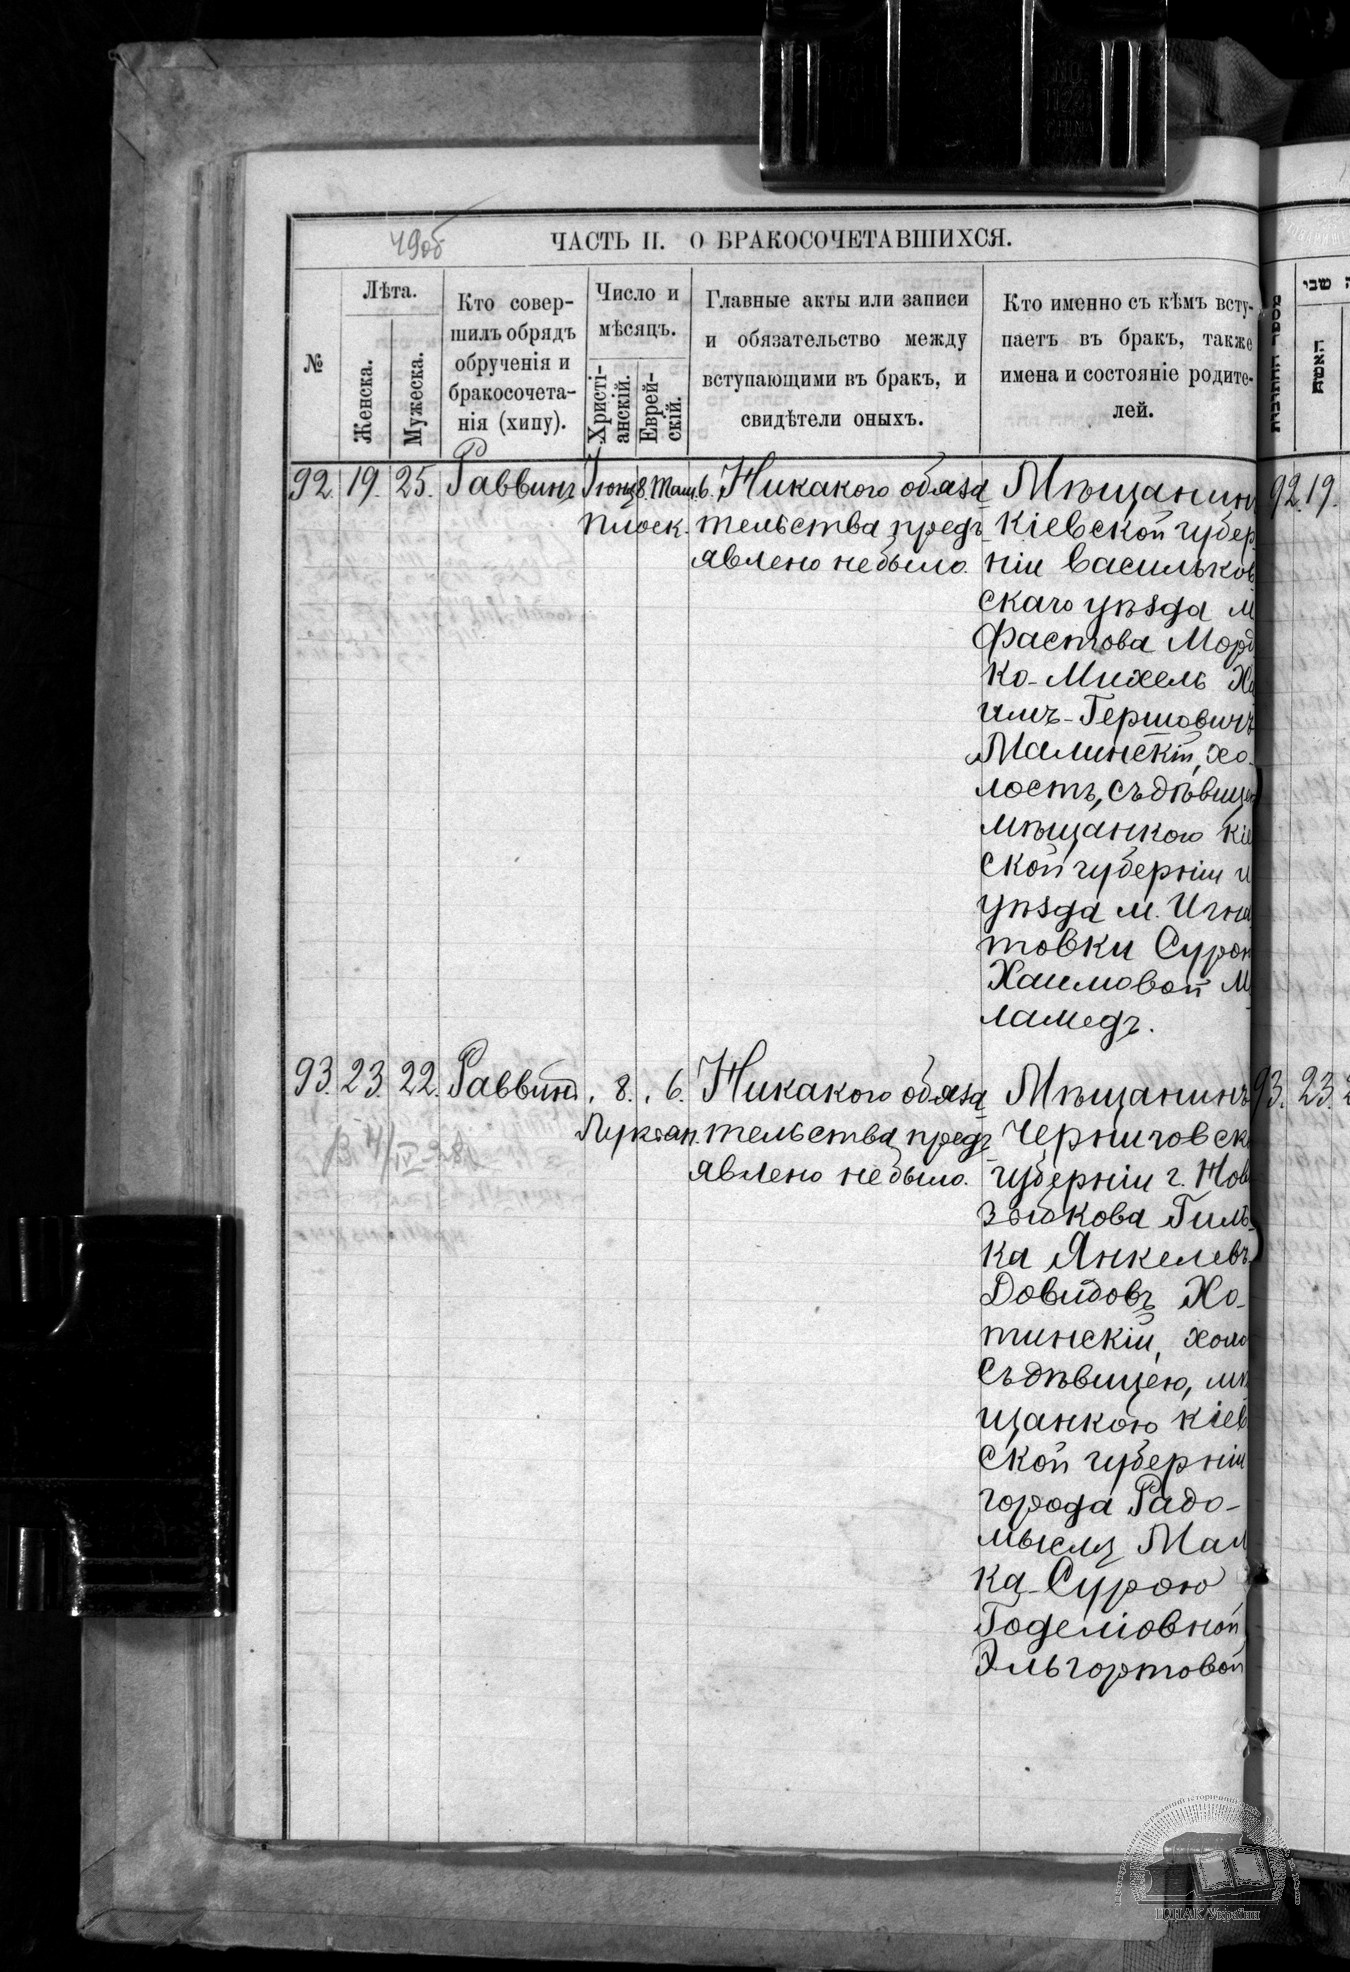 49об
ЧАСТЬ II. О БРАКОСОЧЕТАВШИХСЯ.
№
Лѣта.
Женска.
Мужеска.
Кто совер-
шилъ обрядъ
обрученія и
бракосочета-
нія (хипу).
Число и
мѣсяцъ.
Христі-
анскій.
Еврей-
скій.
Главные акты или записи
и обязательство между
вступающими въ бракъ, и
свидѣтели оныхъ.
Кто именно съ кѣмъ всту-
паетъ въ бракъ, также
имена и состояніе родите-
лей.
92. 19. 25. Раввинъ Іюня 8. Таму. 6. Никакого обяза
Плоск. тельства предъ
явлено не было.
Мѣщанинъ
Кіевской губер
ніи Васильков
скаго уѣзда м
Фастова Морд
ко-Михель Ха
имъ-Гершовичъ
Малинскій, хо-
лостъ, съ дѣвице
мѣщанкою Кіе
ской губерніи и
уѣзда м. Игна
товки Сурою
Хаимовой М
ламедъ.
93. 23. 22. Раввинъ . 8. . 6. Никакого обяза
Лукьян. тельства предъ
явлено не было.
Мѣщанинъ
Черниговск
губерніи г. Нов
зыбкова Гиль-
ка Янкелевъ
Довидовъ Хо-
тинскій, холо
съ дѣвицею, мѣ
щанкою Кіев
ской губерніи
города Радо-
мысля Мал
ка-Сурою
Годеліовной
Эльгортовой
שבי
האשה
92. 19.
93. 23. 2
ЦДІАК України